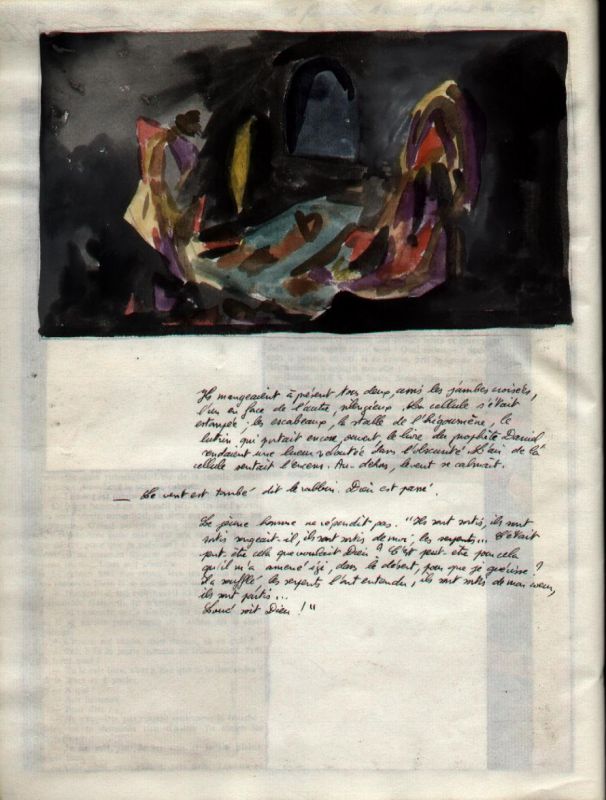 Ils mangeaient à présent tous deux, assis les jambes croisées,
l'un en face de l'autre, silencieux. La cellule s'était
estompée; les escabeaux, la stalle de l'higoumène, le
lutrin qui portait encore, ouvert, le livre du prophète Daniel,
rendaient une lueur veloutée dans l'obscurité. L'air de la
cellule sentait l'encens. Au-dehors, le vent se calmait.
— Le vent est tombé dit le rabbin. Dieu est passé.
Le jeune homme ne répondit pas. "Ils sont sortis, ils sont
sortis songeait-il, ils sont sortis de moi, les serpents... C'était
peut-être cela que voulait Dieu? C'est peut-être pour cela
qu'il m'a amené ici, dans le désert, pour que je guérisse?
Il a soufflé, les serpents l'ont entendu, ils sont sortis de mon coeur,
ils sont partis...
Loué soit Dieu!"